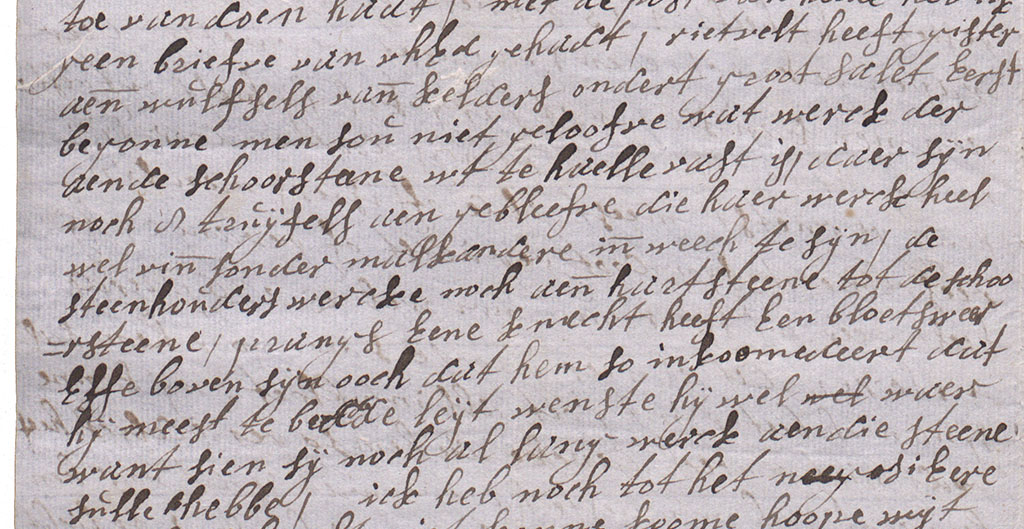 toe van doen hadt, met de post
geen briefve van uhEd gehadt, rietvelt heeft gister
aen wulfsels van kelders ondert groot salet Eerst
begonne men sou niet geloofve wat werck der
aende schoorstene wt te haelle vast is, daer syn
noch truyfels aen gebleefve die haer werck heel
wel vin sonder malkandere in weech te syn, de
steenhouders wercke noch aen hartsteene tot de schoo
=rsteene, prangs Eene knecht heeft Een bloetsweer
Effe boven syn ooch dat hem so inkoomedeert dat
hy meest te bedde leyt wenste hy wel wel waer
want sien sy noch al lang werck aendie steene
sulle hebbe, ick heb noch tot het
koome hoope wyt